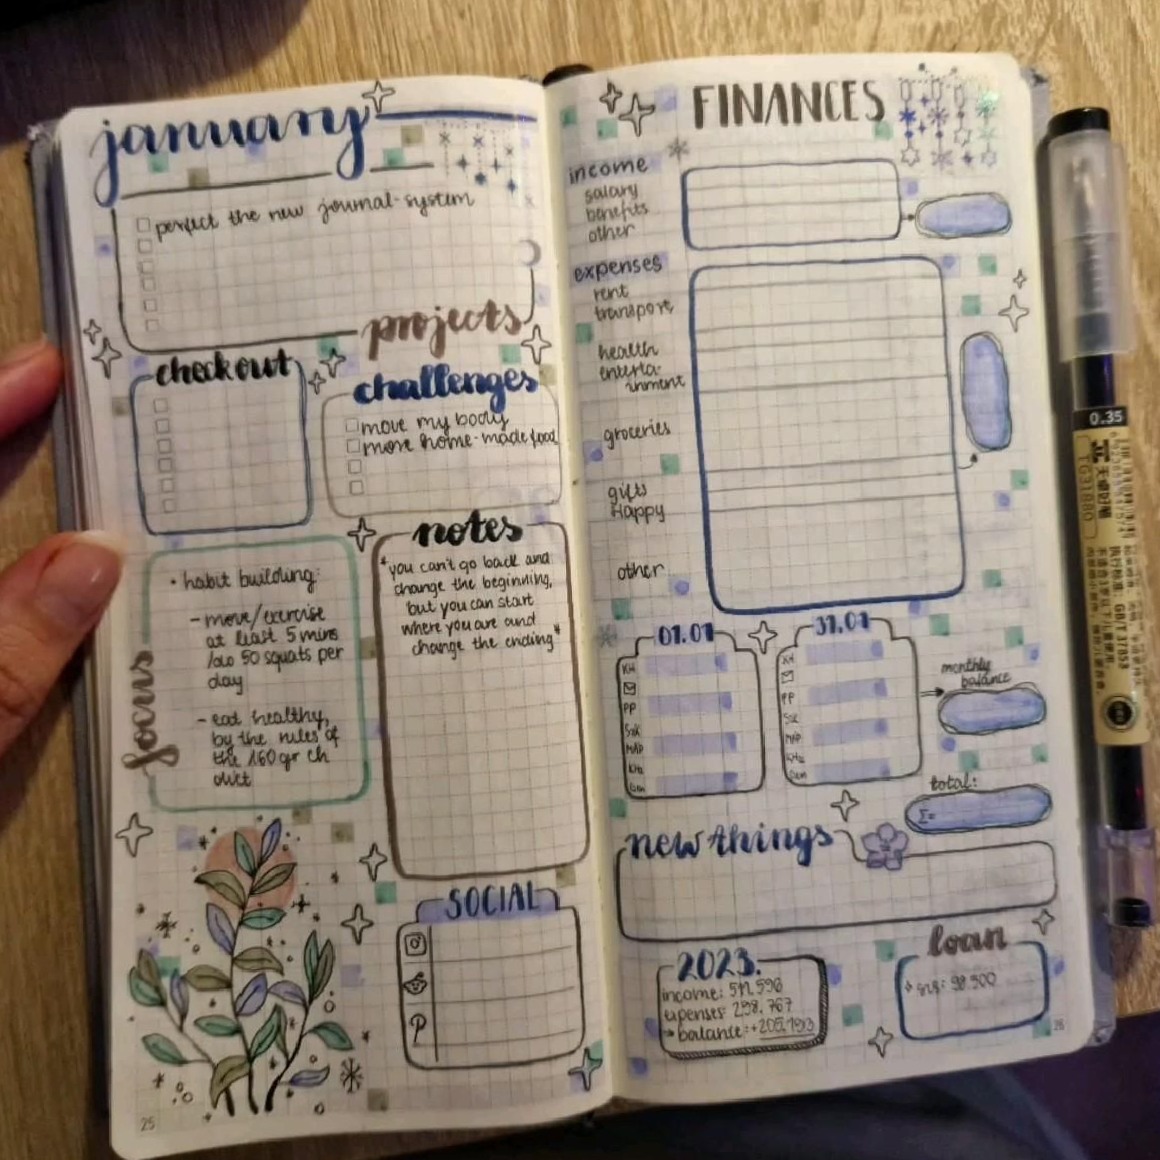 january
perfect the new journal-system
projects
checkout
challenges
move my body
more home-made food
notes
"you can't go back and
change the beginning,
but you can start
where you are and
change the ending"
focus
• habit building:
- move/exercise
at least 5 mins
/do 50 squats per
day
- eat healthy,
by the rules of
the 160 gr ch
diet
SOCIAL
25
FINANCES
income
salary
benefits
other
expenses
rent
transport
health
enterta-
inment
groceries
gifts
Happy
other
01.01
KH
PP
MAP
31.01
KH
PP
MAP
monthly
balance
total:
Σ=
new things
2023.
income:
expenses: 298.767
→ balance:
loan
98.500
26
0.35
TG31880